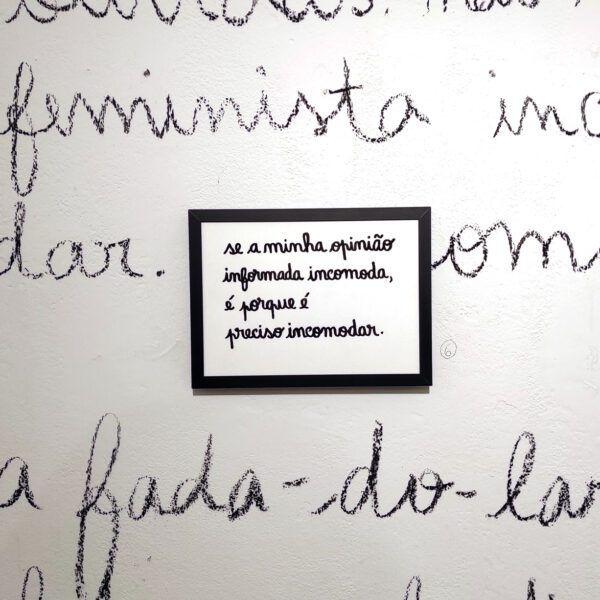 feminista inc
dar.
om
se a minha opinião
informada incomoda,
é porque é
preciso incomodar.
6
a fada-do-lar